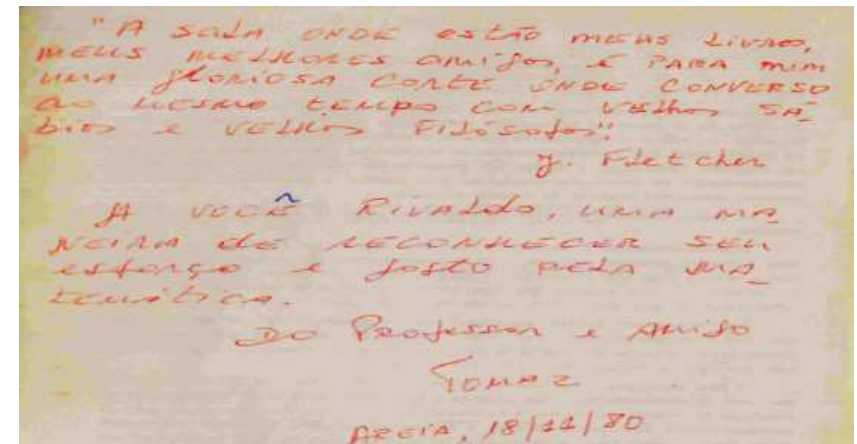 "A sala onde estão meus livros,
meus melhores amigos, é para mim
uma gloriosa corte onde converso
ao mesmo tempo com velhos sá_
bios e velhos filósofos".
J. Fletcher
A você Rivaldo, uma ma_
neira de reconhecer seu
esforço e gosto pela ma_
temática.
Do Professor e Amigo
Tomaz
Areia, 18/11/80